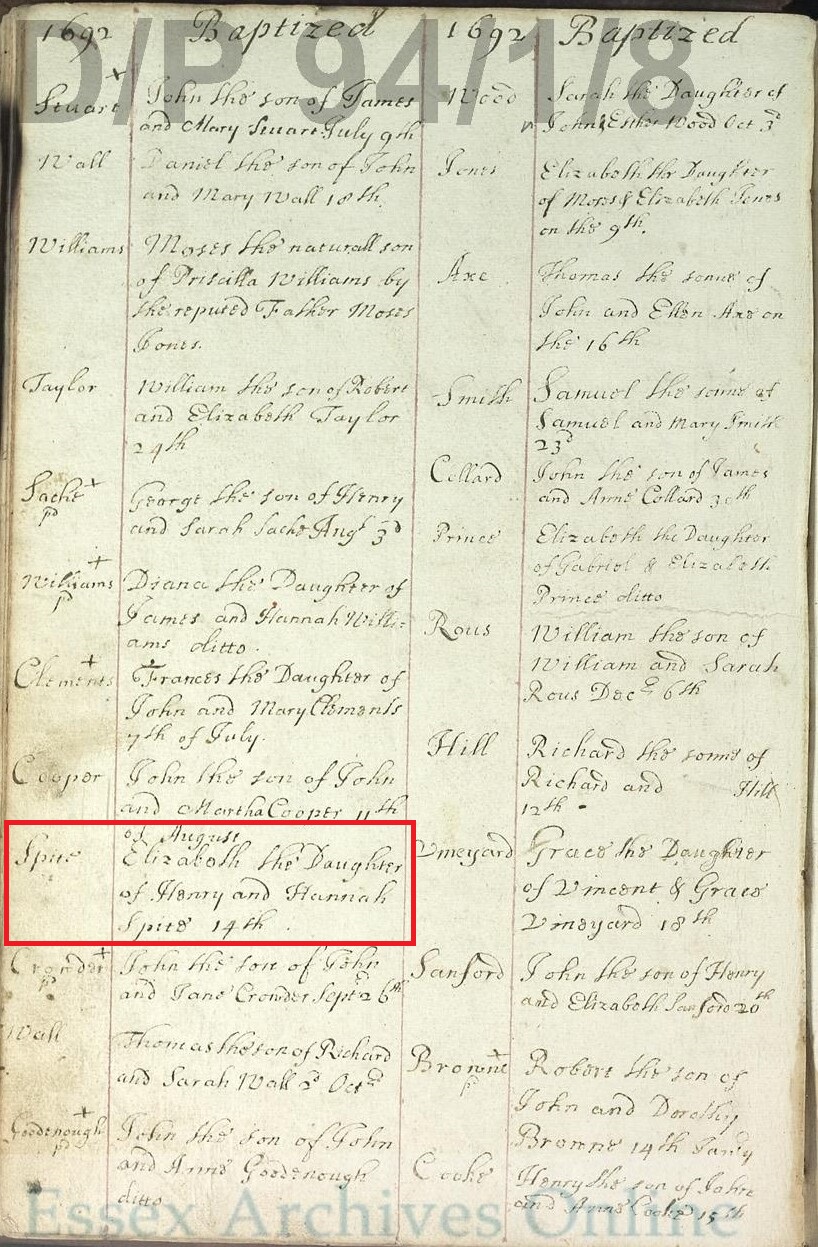 D/P 94/1/8
1692 Baptized
Stuart + John the son of James
and Mary Stuart July 9th
Wall Daniel the son of John
and Mary Wall 18th.
Williams Moses the naturall son
of Priscilla Williams by
the reputed Father Moses
Jones.
Taylor William the son of Robert
and Elizabeth Taylor
24th
Sache + George the son of Henry
pd and Sarah Sache Augt 3d
Williams + Diana the Daughter of
pd James and Hannah Willi-
ams ditto.
Clements + Frances the Daughter of
John and Mary Clements
7th of July.
Cooper John the son of John
and Martha Cooper 11th
of August
Spite Elizabeth the Daughter
of Henry and Hannah
Spite 14th.
Crowder + John the son of John
pd and Jane Crowder Septr 26th
Wall Thomas the son of Richard
and Sarah Wall 2d Octr
Goodenough + John the son of John
pd and Anne Goodenough
ditto
1692 Baptized
Wood Sarah the Daughter of
John & Esther Wood Oct 3d
Jones Elizabeth the Daughter
of Moses & Elizabeth Jones
on the 9th.
Axe Thomas the sonne of
John and Ellen Axe on
the 16th
Smith Samuel the sonne of
Samuel and Mary Smith
23d
Collard John the son of James
and Anne Collard 30th
Prince Elizabeth the Daughter
of Gabriel & Elizabeth
Prince ditto
Rous William the son of
William and Sarah
Rous Decr 6th
Hill Richard the sonne of
Richard and Hill
12th
Vineyard Grace the Daughter
of Vincent & Grace
Vineyard 18th
Sanford John the son of Henry
and Elizabeth Sanford 20th
Browne + Robert the son of
p John and Dorothy
Browne 14th Janry
Cooke Henry the son of John
and Anne Cooke 15th
Essex Archives Online